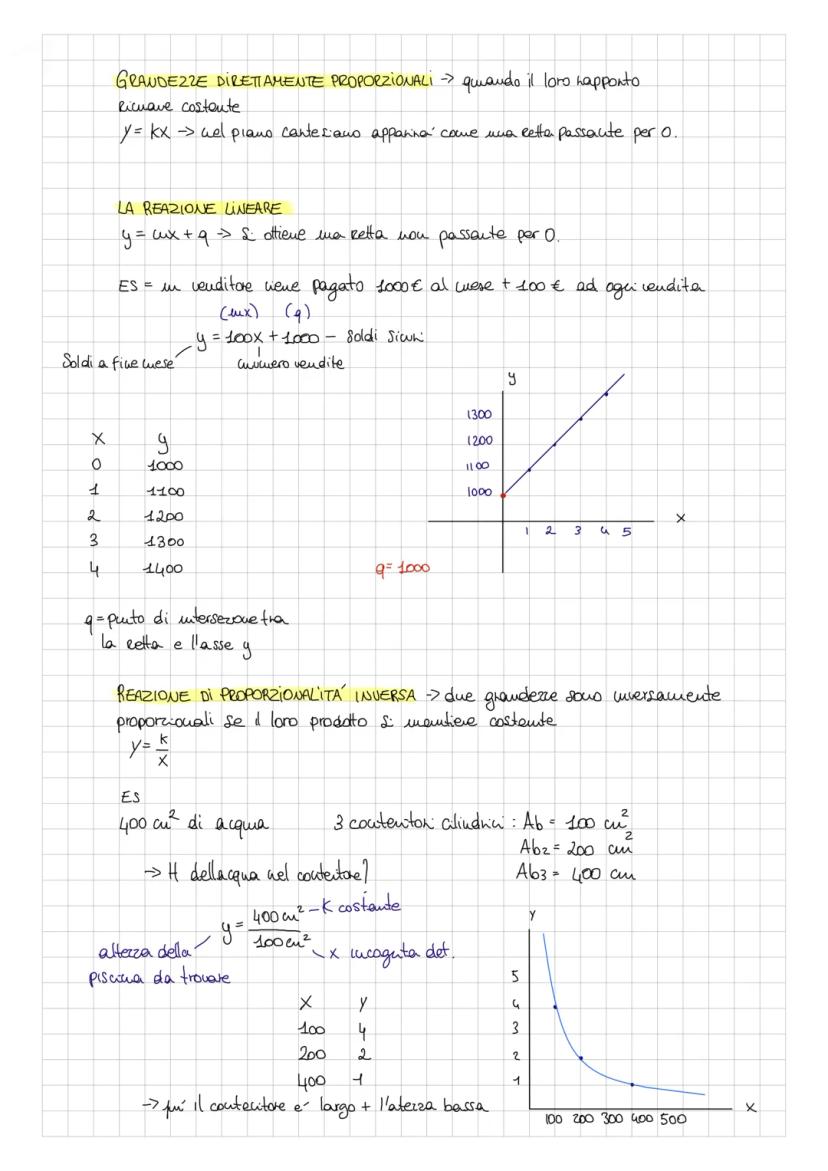 GRANDEZZE DIRETTAMENTE PROPORZIONALI -> quando il loro rapporto
rimane costante
y = kx -> nel piano cartesiano apparirà come una retta passante per 0.
LA REAZIONE LINEARE
y = mx + q -> Si ottiene una retta non passante per 0.
ES = un venditore viene pagato 1000 € al mese + 100 € ad ogni vendita
(mx) (q)
y = 100x + 1000 - Soldi sicuri
Soldi a fine mese numero vendite
y
1300
1200
1100
1000
1 2 3 4 5 x
x y
0 1000
1 1100
2 1200
3 1300
4 1400
q = 1000
q = punto di intersezione tra
la retta e l'asse y
REAZIONE DI PROPORZIONALITÁ INVERSA -> due grandezze sono inversamente
proporzionali se il loro prodotto si mantiene costante
y = k/x
ES
400 cm² di acqua 3 contenitori cilindrici : Ab = 100 cm²
Ab2 = 200 cm²
-> H dell'acqua nel contenitore? Ab3 = 400 cm
y = 400 cm²/100 cm² - K costante
x incognita det.
altezza della
piscina da trovare
x y
100 4
200 2
400 1
-> più il contenitore é largo + l'atezza bassa
y
5
4
3
2
1
100 200 300 400 500 x